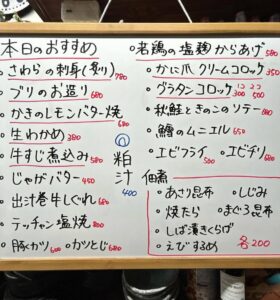 本日のおすすめ
・さわらの刺身(炙り) 780
・ブリのお造り 680
・かきのレモンバター焼 680
・生わかめ 380
・牛すじ煮込み 580
・じゃがバター 450
・出汁巻牛しぐれ 680
・テッチャン塩焼 800
・豚カツ 600 ・カツとじ 680
粕汁 400
・若鶏の塩麹からあげ 580
・かに爪クリームコロッケ 350
・グラタンコロッケ 1コ 300 2コ 500
・秋鮭ときのこのソテー 680
・鱈のムニエル 650
・エビフライ 500 ・エビチリ 680
佃煮
・あさり昆布 ・しじみ
・焼たら ・まぐろ昆布
・しば漬きくらげ
・えびするめ 各200